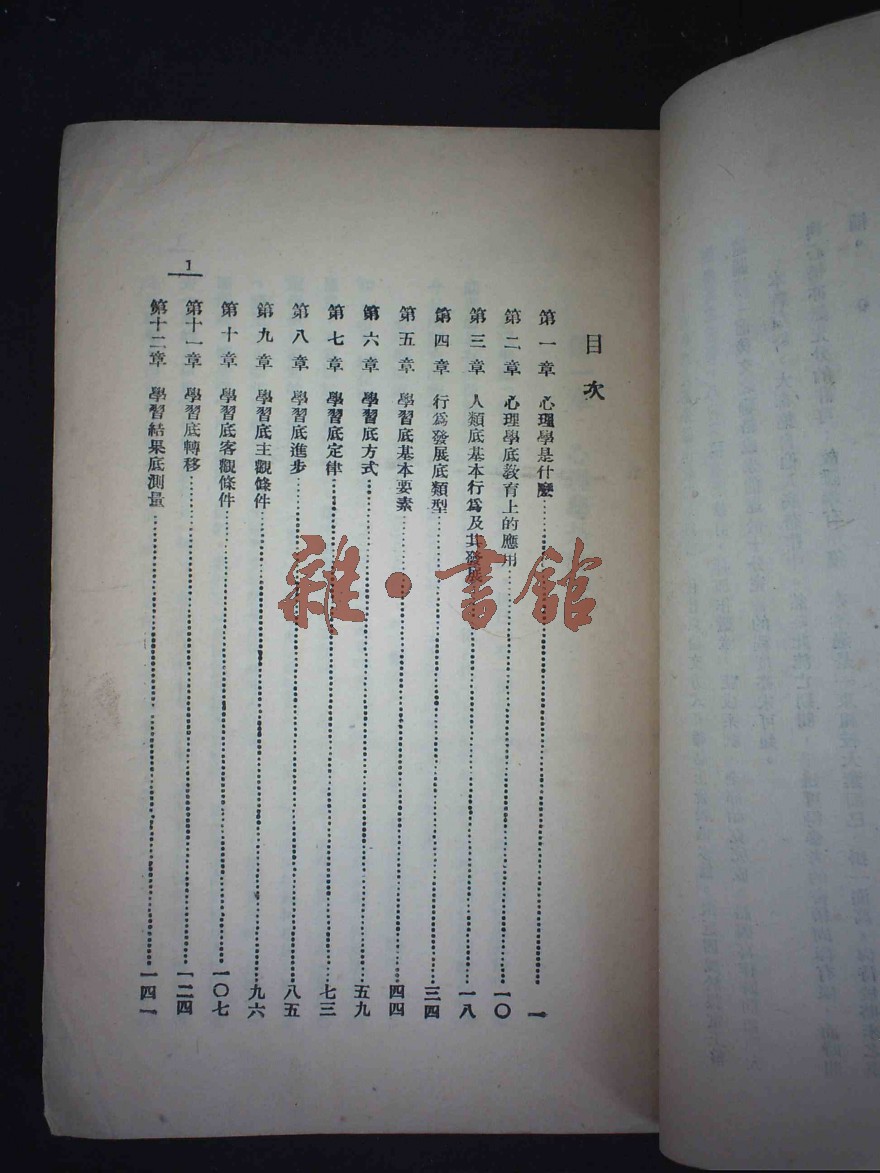 目次
第一章 心理學是什麼……一
第二章 心理學底教育上的應用……一〇
第三章 人類底基本行爲及其發展……一八
第四章 行爲發展底類型……三四
第五章 學習底基本要素……四四
第六章 學習底方式……五九
第七章 學習底定律……七三
第八章 學習底進步……八五
第九章 學習底主觀條件……九六
第十章 學習底客觀條件……一〇七
第十一章 學習底轉移……一二四
第十二章 學習結果底測量……一四一
1
雜·書館